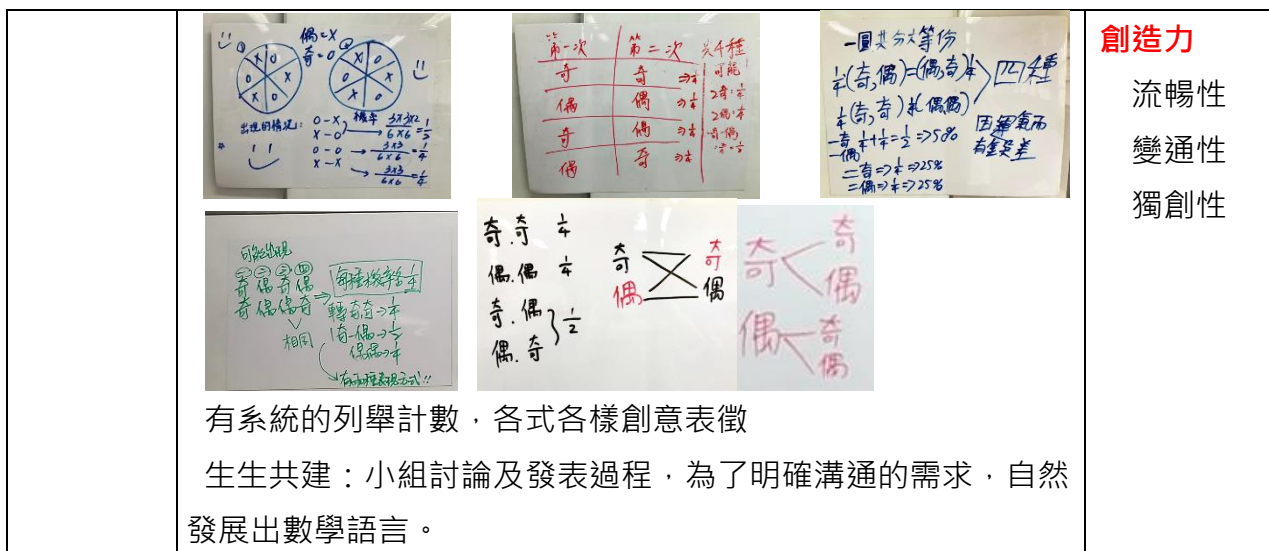 偶=X
奇=0
X
0
X
0
X
0
X
0
X
0
X
0
出現的情況:
機率
0-X
X-0
3X3X2
6X6
=1/2
0-0
→ 3X3/6X6 = 1/4
X-X
→ 3X3/6X6 = 1/4
第一次 第二次 共4種
可能
奇 奇 ⇒1/4
偶 偶 ⇒1/4
奇 偶 ⇒1/4
偶 奇 ⇒1/4
2奇:1/4
2偶:1/4
一圓共分六等份
1/4(奇,偶)=(偶,奇)1/4
四種
1/4(奇,奇)≠(偶偶)
一奇
一偶
1/4+1/4=1/2⇒50%
二奇⇒1/4⇒25%
二偶⇒1/4⇒25%
有誤差
可能出現
一 二 三 四
奇 偶 奇 偶
奇 偶 偶 奇
相同
每種機率各1/4
轉奇奇→1/4
1奇1偶→1/2
偶偶→1/4
有兩種表現方式!!
奇.奇 1/4
偶.偶 1/4
奇.偶
偶.奇
1/2
奇 奇
偶 偶
奇
奇
偶
偶
奇
偶
有系統的列舉計數,各式各樣創意表徵
生生共建:小組討論及發表過程,為了明確溝通的需求,自然
發展出數學語言。
創造力
流暢性
變通性
獨創性